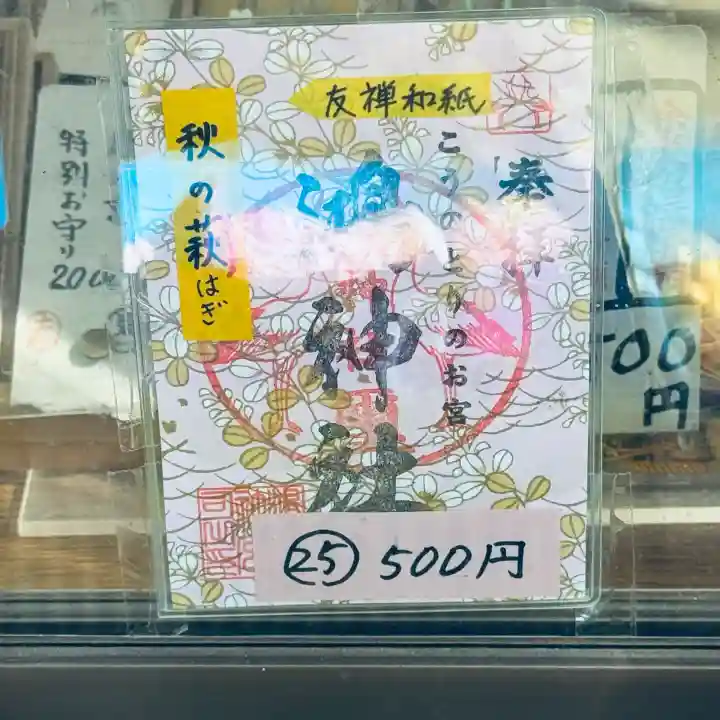 友禅和紙
秋の萩
はぎ
奉拝
こうのとりのお宮
鴻神社
㉕ 500円
特別お守り
200
500
円